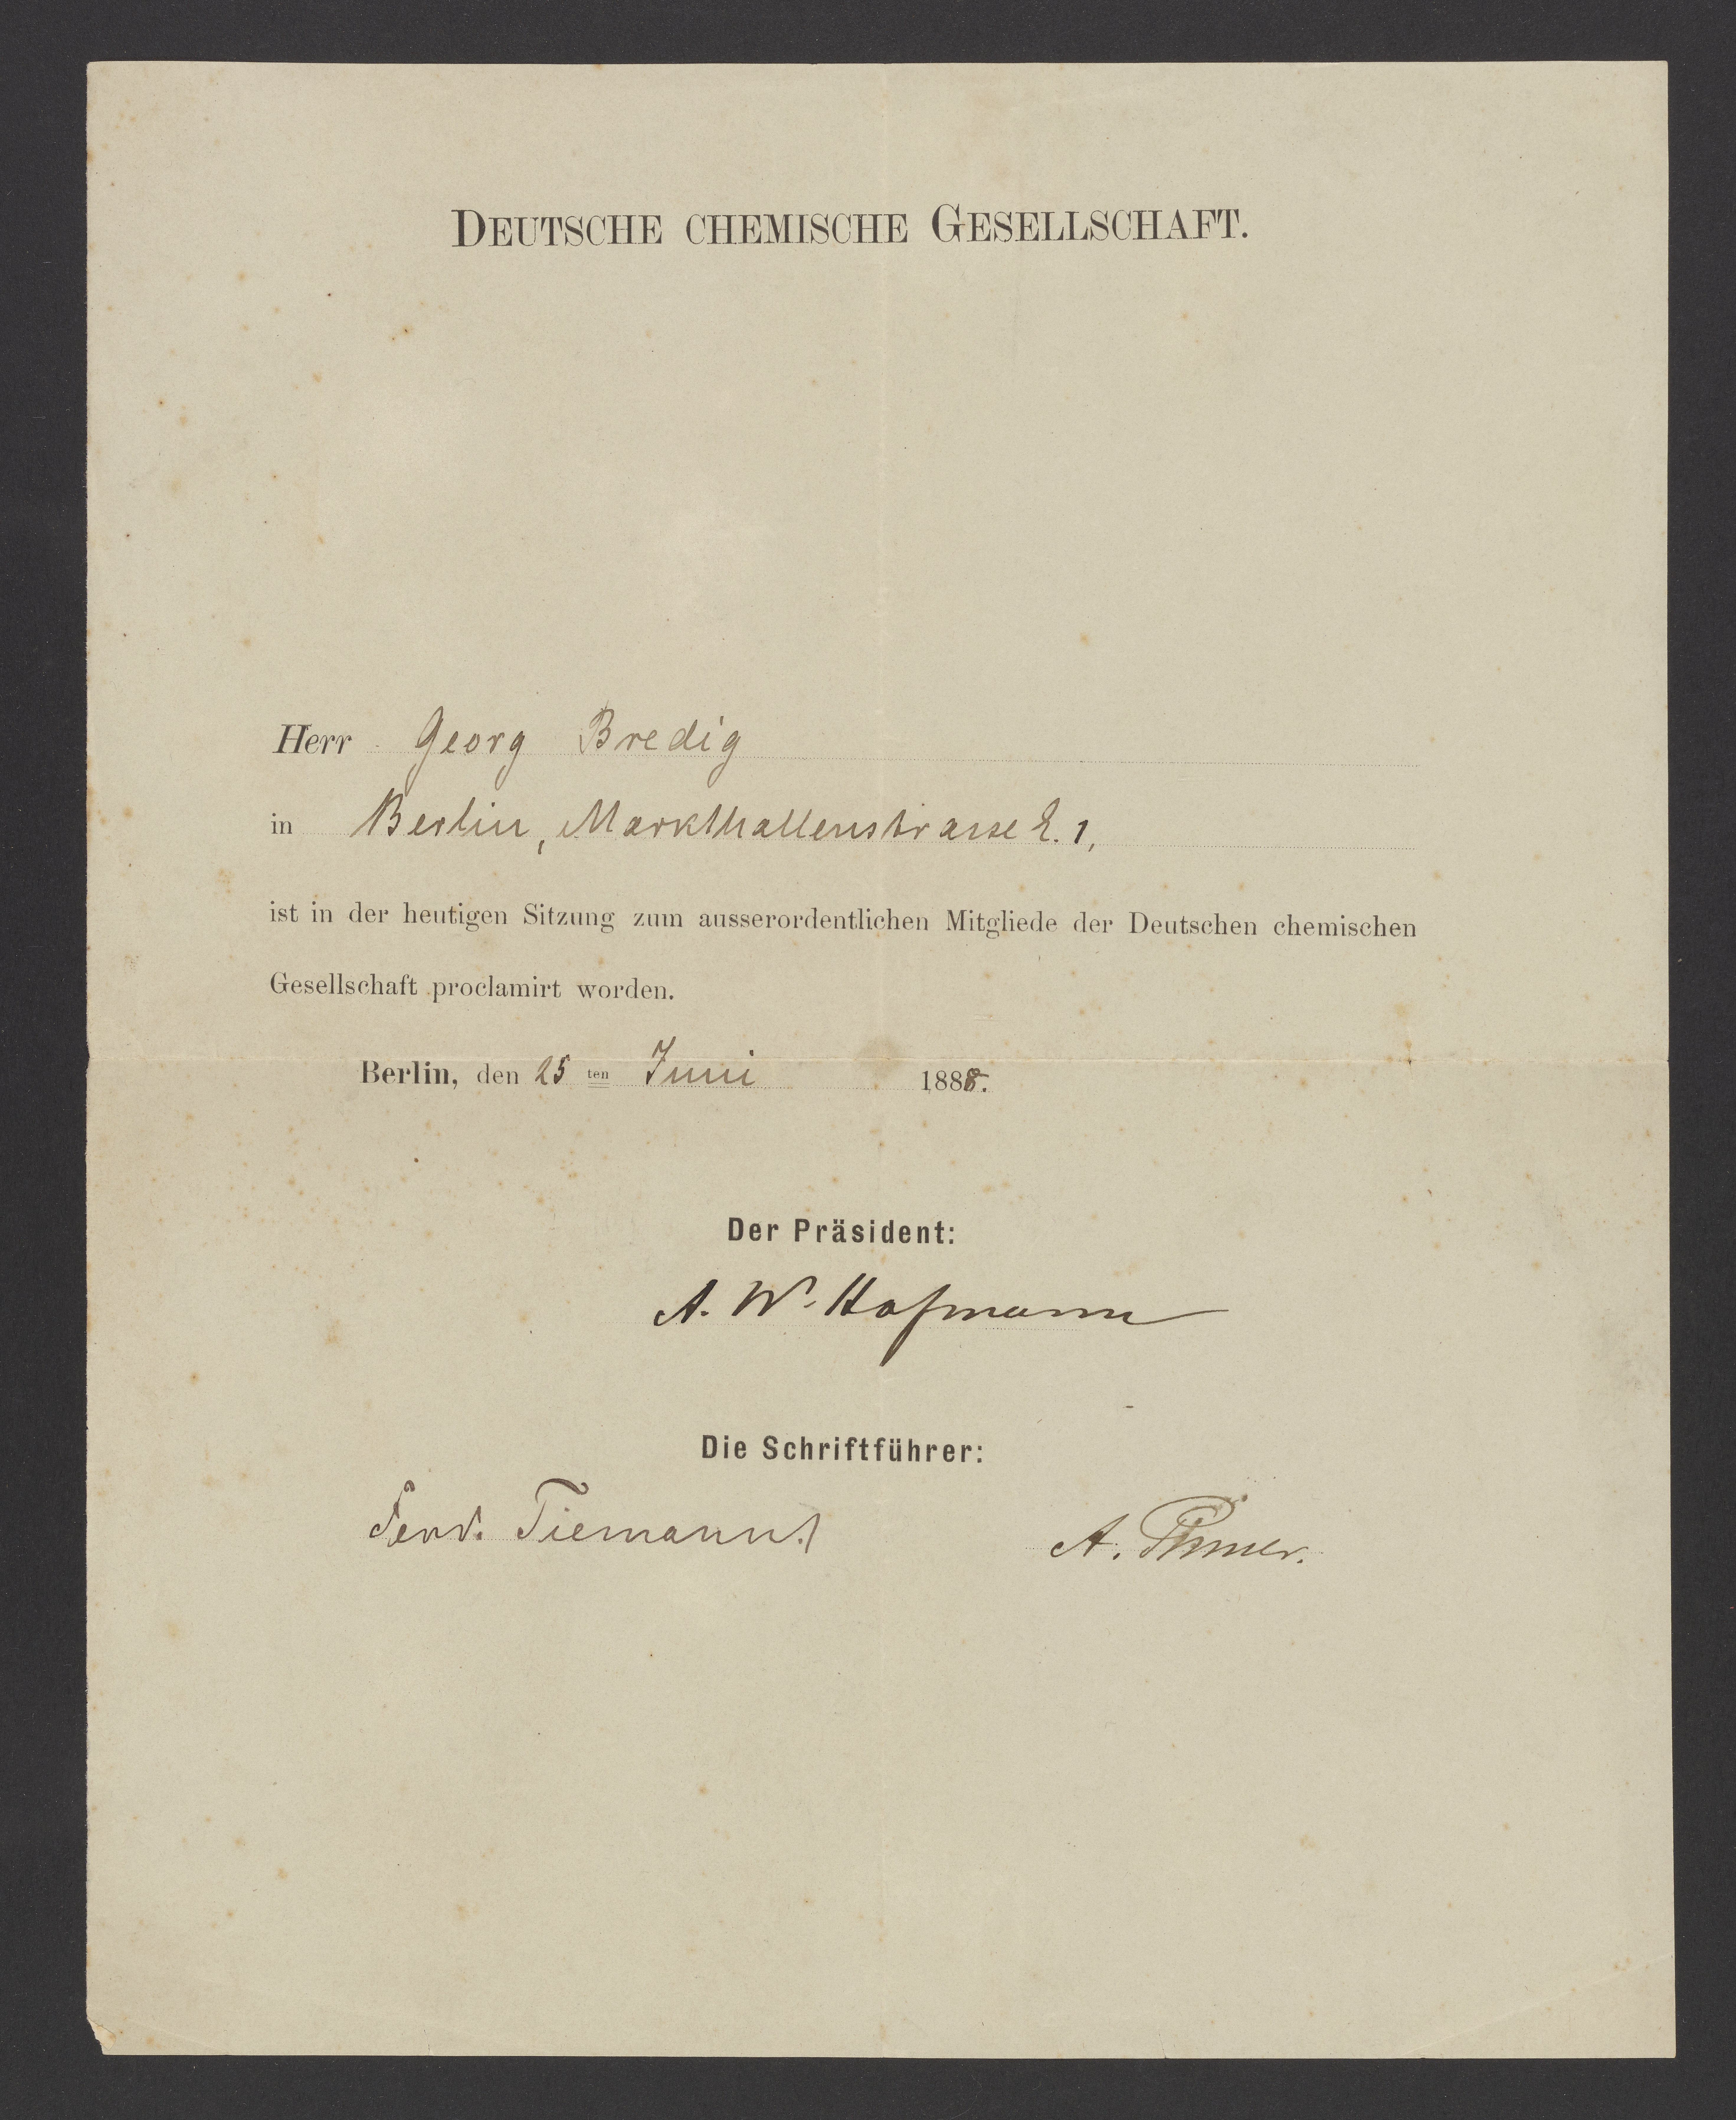 DEUTSCHE CHEMISCHE GESELLSCHAFT.
Herr Georg Bredig
in Berlin, Markthallenstrasse 2. 1,
ist in der heutigen Sitzung zum ausserordentlichen Mitgliede der Deutschen chemischen
Gesellschaft proclamirt worden.
Berlin, den 25 ten Juni 1888.
Der Präsident:
A. W. Hofmann
Die Schriftführer:
Ferd. Tiemann. A. Pinner.